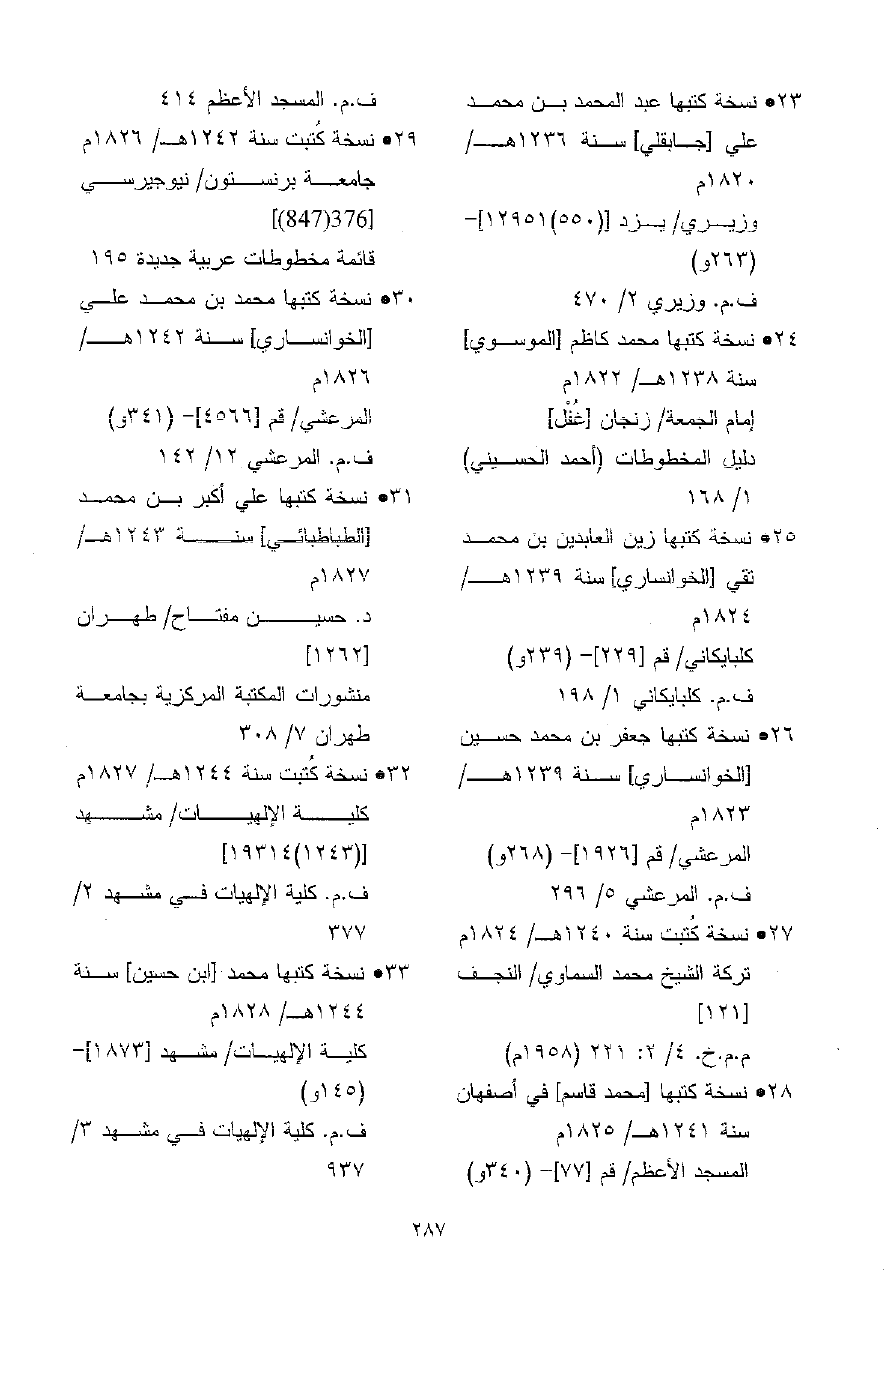 ٢٣* نسخة كتبها عبد المحمد بن محمد
علي [جابقلي] سنة ١٢٣٦هـ/
١٨٢٠م
وزيري/ يزد [(٥٥٠)١٢٩٥١]-
(٢٦٣و)
ف.م. وزيري ٢/ ٤٧٠
٢٤* نسخة كتبها محمد كاظم [الموسوي]
سنة ١٢٣٨هـ/ ١٨٢٢م
إمام الجمعة/ زنجان [غُفْل]
دليل المخطوطات (أحمد الحسيني)
١/ ١٦٨
٢٥* نسخة كتبها زين العابدين بن محمد
تقي [الخوانساري] سنة ١٢٣٩هـ/
١٨٢٤م
كلبايكاني/ قم [٢٢٩]- (٢٣٩و)
ف.م. كلبايكاني ١/ ١٩٨
٢٦* نسخة كتبها جعفر بن محمد حسين
[الخوانساري] سنة ١٢٣٩هـ/
١٨٢٣م
المرعشي/ قم [١٩٢٦]- (٢٦٨و)
ف.م. المرعشي ٥/ ٢٩٦
٢٧* نسخة كُتبت سنة ١٢٤٠هـ/ ١٨٢٤م
تركة الشيخ محمد السماوي/ النجف
[١٢١]
م.م.خ. ٤/ ٢: ٢٢١ (١٩٥٨م)
٢٨* نسخة كتبها [محمد قاسم] في أصفهان
سنة ١٢٤١هـ/ ١٨٢٥م
المسجد الأعظم/ قم [٧٧]- (٣٤٠و)
ف.م. المسجد الأعظم ٤١٤
٢٩* نسخة كُتبت سنة ١٢٤٢هـ/ ١٨٢٦م
جامعة برنستون/ نيوجيرسي
[376(847)]
قائمة مخطوطات عربية جديدة ١٩٥
٣٠* نسخة كتبها محمد بن محمد علي
[الخوانساري] سنة ١٢٤٢هـ/
١٨٢٦م
المرعشي/ قم [٤٥٦٦]- (٣٤١و)
ف.م. المرعشي ١٢/ ١٤٢
٣١* نسخة كتبها علي أكبر بن محمد
[الطباطبائي] سنة ١٢٤٣هـ/
١٨٢٧م
د. حسين مفتاح/ طهران
[١٢٦٢]
منشورات المكتبة المركزية بجامعة
طهران ٧/ ٣٠٨
٣٢* نسخة كُتبت سنة ١٢٤٤هـ/ ١٨٢٧م
كلية الإلهيات/ مشهد
[(١٢٤٣)١٩٣١٤]
ف.م. كلية الإلهيات في مشهد ٢/
٣٧٧
٣٣* نسخة كتبها محمد [ابن حسين] سنة
١٢٤٤هـ/ ١٨٢٨م
كلية الإلهيات/ مشهد [١٨٧٣]-
(١٤٥و)
ف.م. كلية الإلهيات في مشهد ٣/
٩٣٧
٢٨٧